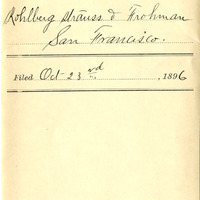 Rohlberg Strauss & Frohman
San Francisco.
Filed Oct 23rd, 1896